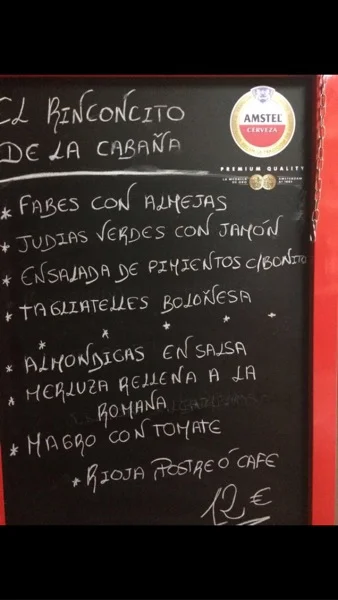 EL RINCONCITO
DE LA CABAÑA
AMSTEL
CERVEZA
PREMIUM QUALITY
* FABES CON ALMEJAS
* JUDIAS VERDES CON JAMÓN
* ENSALADA DE PIMIENTOS C/BONITO
* TAGLIATELLES BOLOÑESA
* * * * *
* ALMONDIGAS EN SALSA
* MERLUZA RELLENA A LA
ROMANA
* MAGRO CON TOMATE
* RIOJA POSTRE Ó CAFE
12 €